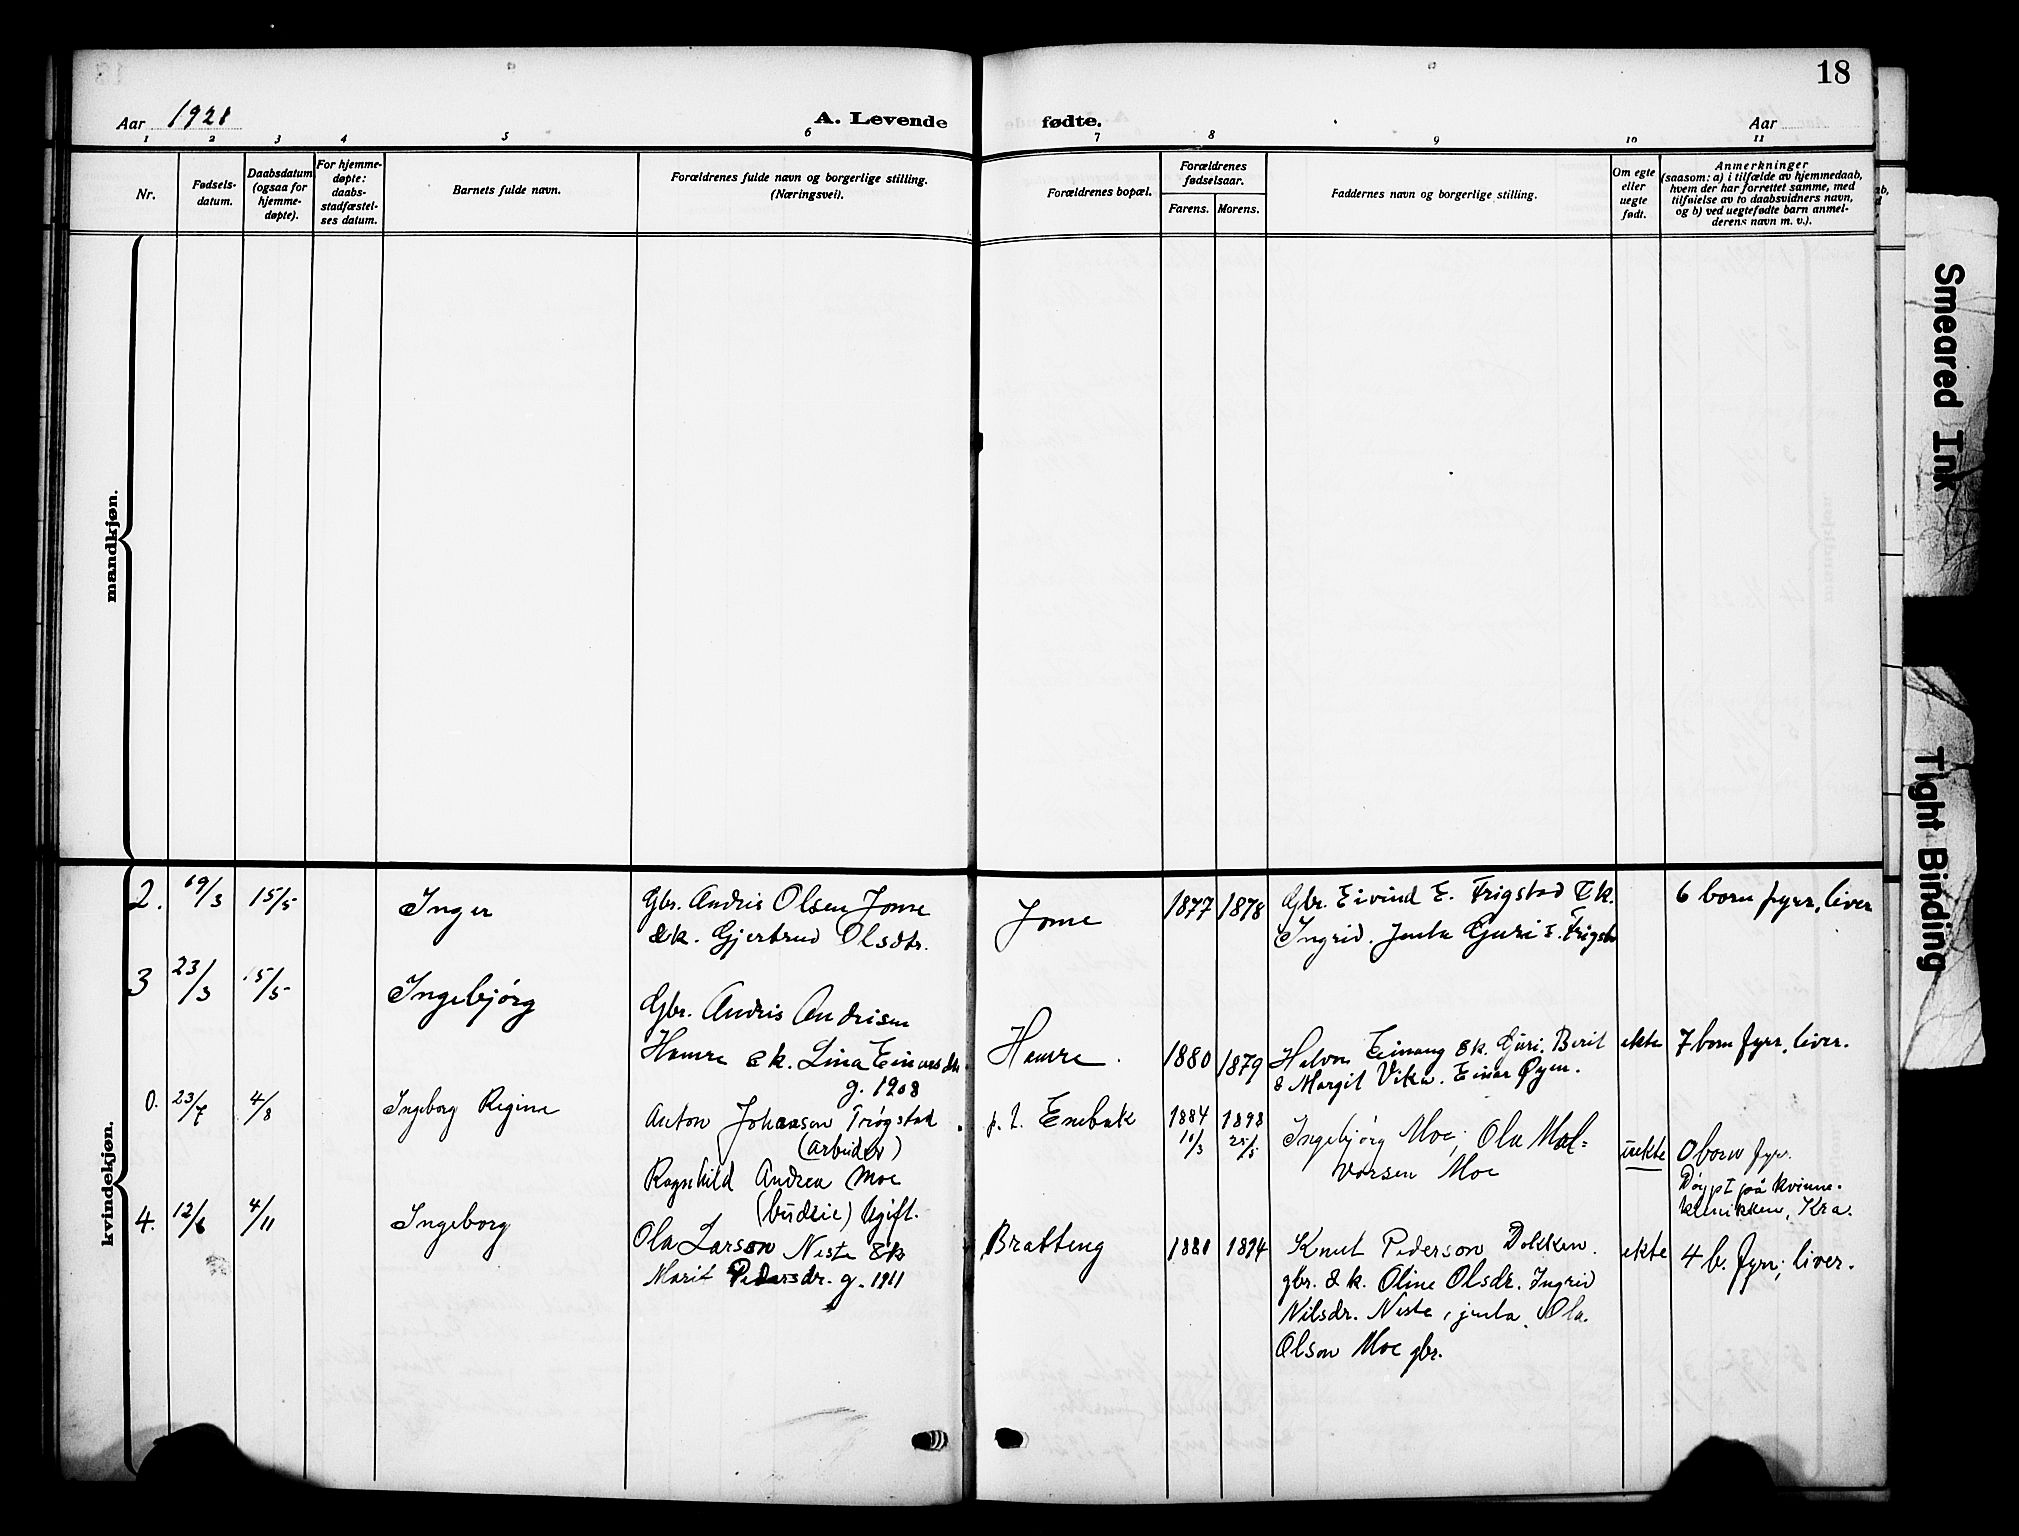 18
Aar 1921
A. Levende fødte.
Aar
1 2 3 4 5 6 7 8 9 10 11
Nr.
Fødsels-
datum.
Daabsdatum
(ogsaa for
hjemme-
døpte).
For hjemme-
døpte:
daabs-
stadfæstel-
ses datum.
Barnets fulde navn.
Forældrenes fulde navn og borgerlige stilling.
(Næringsvei).
Forældrenes bopæl.
Forældrenes
fødselsaar.
Farens. Morens.
Faddernes navn og borgerlige stilling.
Om egte
eller
uegte
født.
Anmerkninger
(saasom: a) i tilfælde av hjemmedaab,
hvem der har forrettet samme, med
tilføielse av to daabsvidners navn,
og b) ved uegtefødte barn anmel-
derens navn m. v.).
mandkjøn.
kvindekjøn.
2. 19/3 15/5 Inger
Gbr. Andris Olsen Jome
& k. Gjertrud Olsdtr.
Jome 1877 1878
Gbr. Eivind E. Frigstad & k.
Ingrid. Jenta Guri E. Frigstad
6 born fyrr, liver
3 23/3 15/5 Ingebjørg
Gbr. Andris Andrisen
Hamre & k. Lina Einarsdtr.
g. 1908
Hamre. 1880 1879
Halvor Einang & k. Guri. Berit
& Margit Vika. Einar Øyen.
ekte 7 born fyrr, liver.
0. 23/7 4/8 Ingeborg Regine
Anton Johansen Trøgstad
(arbeider)
Ragnhild Andrea Moe
(budeie) Ugift.
p. t. Enebak 1884 1898
10/3 25/5
Ingebjørg Moe; Ola Hal=
vorsen Moe
uekte 0 born fyr.
Døypt på kvinne-
klinikken, Kra.
4. 12/6 4/11 Ingeborg
Ola Larson Neste & k
Marit Pedersdr. g. 1911
Bratteng 1881 1894
Knut Pederson Dokken.
gbr. & k. Oline Olsdr. Ingrid
Nilsdr. Neste, jenta, Ola
Olson Moe gbr.
ekte 4 b. fyrr; liver.
Smeared Ink
Tight Binding